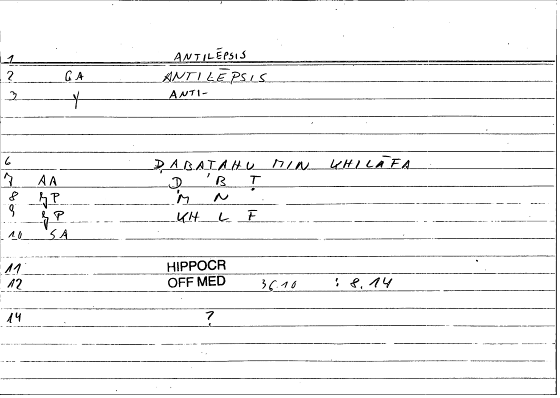 1 ANTILĒPSIS
2 GA ANTILĒPSIS
3 Y ANTI-
6 ḌABAṬAHU MIN KHILĀFA
7 AA Ḍ B Ṭ
8 P M N
9 P KH L F
10 SA
11 HIPPOCR
12 OFF MED 36.10 : 8.14
14 ?